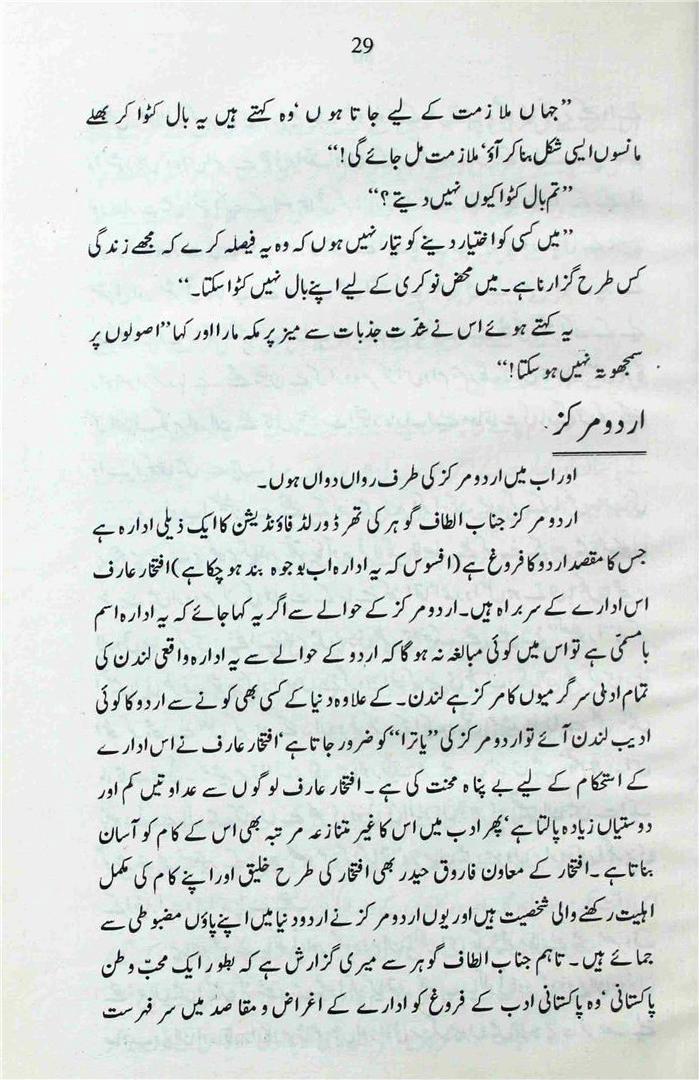 29
”جہاں ملازمت کے لیے جاتا ہوں‘ وہ کہتے ہیں یہ بال کٹوا کر بھلے
مانسوں ایسی شکل بنا کر آؤ‘ ملازمت مل جائے گی!“
”تم بال کٹوا کیوں نہیں دیتے؟“
”میں کسی کو اختیار دینے کو تیار نہیں ہوں کہ وہ یہ فیصلہ کرے کہ مجھے زندگی
کس طرح گزارنا ہے۔ میں محض نوکری کے لیے اپنے بال نہیں کٹوا سکتا۔“
یہ کہتے ہوئے اس نے شدّت جذبات سے میز پر مکہ مارا اور کہا ”اصولوں پر
سمجھوتہ نہیں ہو سکتا!“
اردو مرکز
اور اب میں اردو مرکز کی طرف رواں دواں ہوں۔
اردو مرکز جناب الطاف گوہر کی تھرڈ ورلڈ فاؤنڈیشن کا ایک ذیلی ادارہ ہے
جس کا مقصد اردو کا فروغ ہے (افسوس کہ یہ ادارہ اب بوجوہ بند ہو چکا ہے) افتخار عارف
اس ادارے کے سربراہ ہیں۔ اردو مرکز کے حوالے سے اگر یہ کہا جائے کہ یہ ادارہ اسم
بامسمّیٰ ہے تو اس میں کوئی مبالغہ نہ ہو گا کہ اردو کے حوالے سے یہ ادارہ واقعی لندن کی
تمام ادبی سرگرمیوں کا مرکز ہے لندن۔ کے علاوہ دنیا کے کسی بھی کونے سے اردو کا کوئی
ادیب لندن آئے تو اردو مرکز کی ”یاترا“ کو ضرور جاتا ہے‘ افتخار عارف نے اس ادارے
کے استحکام کے لیے بے پناہ محنت کی ہے۔ افتخار عارف لوگوں سے عداوتیں کم اور
دوستیاں زیادہ پالتا ہے‘ پھر ادب میں اس کا غیر متنازعہ مرتبہ بھی اس کے کام کو آسان
بناتا ہے۔ افتخار کے معاون فاروق حیدر بھی افتخار کی طرح خلیق اور اپنے کام کی مکمل
اہلیت رکھنے والی شخصیت ہیں اور یوں اردو مرکز نے اردو دنیا میں اپنے پاؤں مضبوطی سے
جمائے ہیں۔ تاہم جناب الطاف گوہر سے میری گزارش ہے کہ بطور ایک محبّ وطن
پاکستانی‘ وہ پاکستانی ادب کے فروغ کو ادارے کے اغراض و مقاصد میں سر فہرست